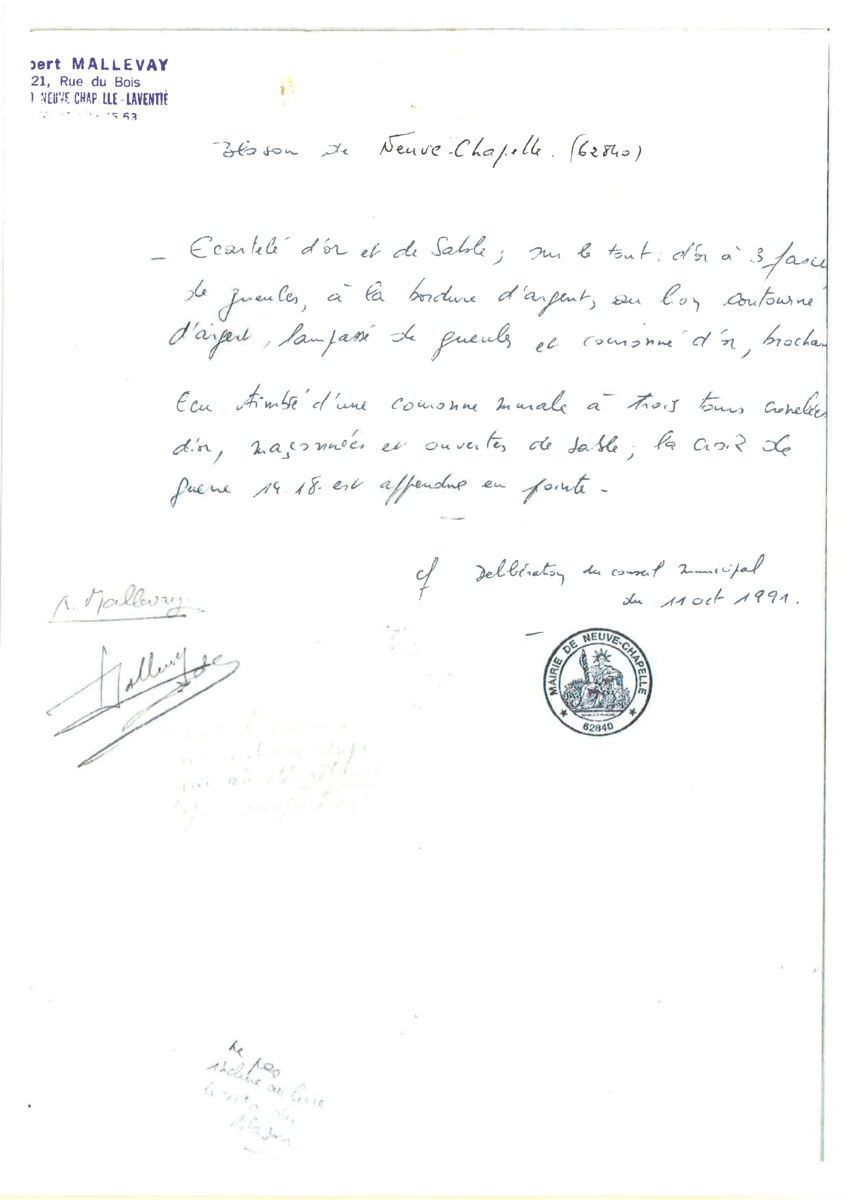 bert MALLEVAY
21, Rue du Bois
NEUVE CHAP LLE - LAVENTIE
63
Blason de Neuve-Chapelle. (62840)
_ Ecartelé d'or et de Sable; sur le tout: d'or à 3 fasce
de gueules, à la bordure d'argent, au lion contourné
d'argent, lampassé de gueules et couronné d'or, brochan
Ecu timbré d'une couronne murale à trois tours crenelées
d'or, maçonnées et ouvertes de sable; la croix de
guerre 14.18. est appendue en pointe -
cf Délibération du conseil municipal
du 11 oct 1991.
R. Mallevay.
MAIRIE DE NEUVE-CHAPELLE
62840
qui été
Ne pas
inclure au livre
le texte du
blason